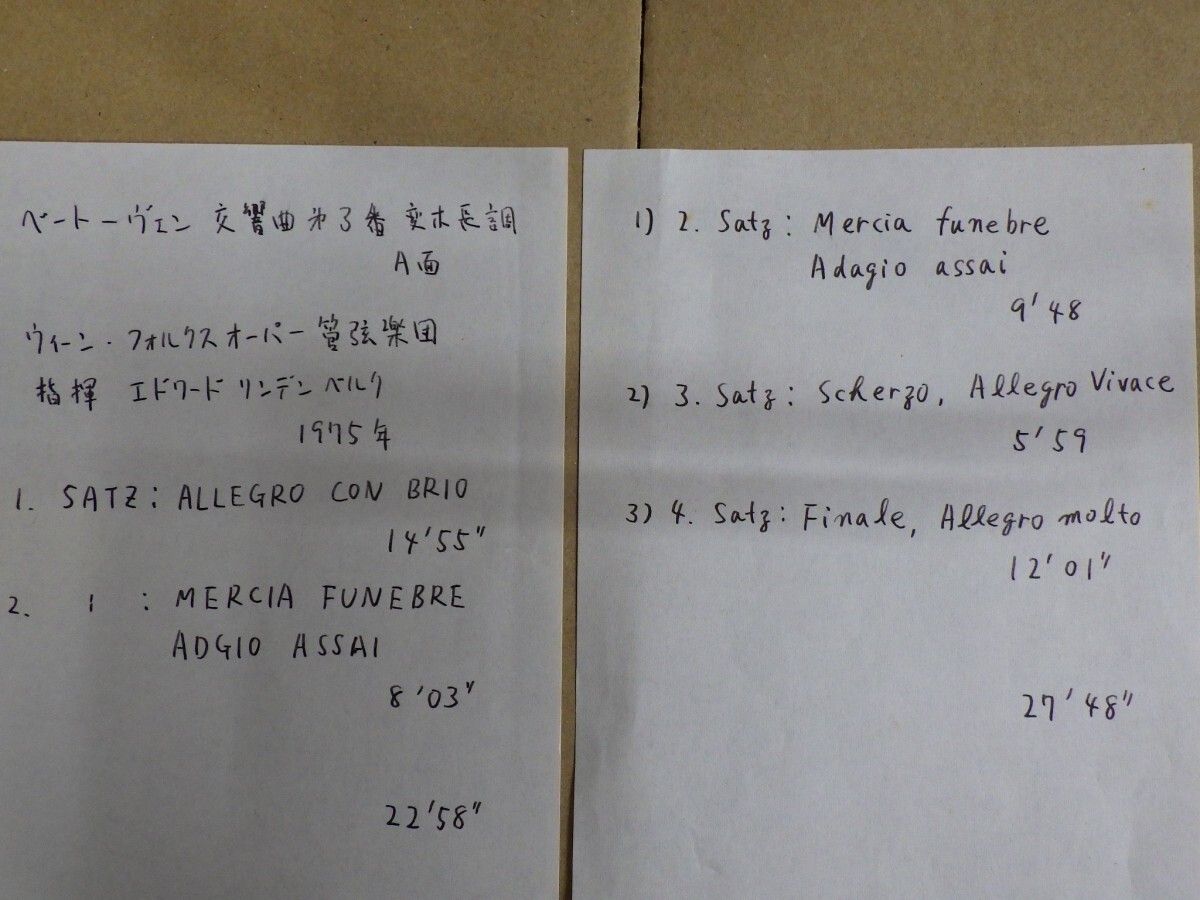 ベートーヴェン 交響曲第3番 変ホ長調
A面
ウィーン・フォルクスオーパー管弦楽団
指揮 エドワード リンデンベルク
1975年
1. SATZ: ALLEGRO CON BRIO
14'55"
2. 1 : MERCIA FUNEBRE
ADGIO ASSAI
8'03"
22'58"
1) 2. Satz: Mercia funebre
Adagio assai
9'48
2) 3. Satz: Scherzo, Allegro Vivace
5'59
3) 4. Satz: Finale, Allegro molto
12'01"
27'48"